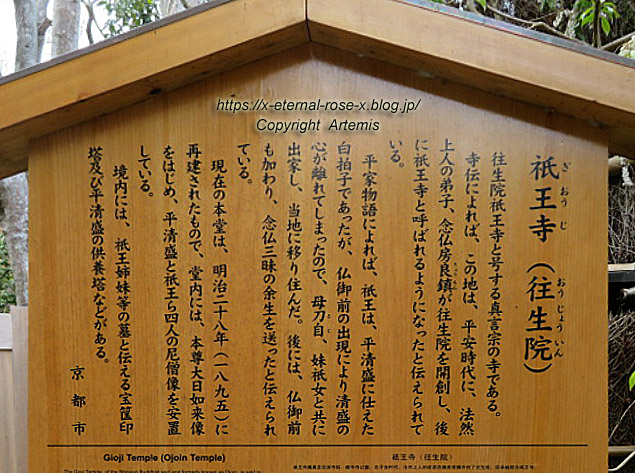 https://x-eternal-rose-x.blog.jp/
Copyright Artemis
祇王寺（往生院）
ぎおうじ
おうじょういん
往生院祇王寺と号する真言宗の寺である。
寺伝によれば、この地は、平安時代に、法然
上人の弟子、念仏房良鎮が往生院を開創し、後
に祇王寺と呼ばれるようになったと伝えられて
いる。
平家物語によれば、祇王は、平清盛に仕えた
白拍子であったが、仏御前の出現により清盛の
心が離れてしまったので、母刀自、妹祇女と共に
出家し、当地に移り住んだ。後には、仏御前
も加わり、念仏三昧の余生を送ったと伝えられ
ている。
現在の本堂は、明治二十八年（一八九五）に
再建されたもので、堂内には、本尊大日如来像
をはじめ、平清盛と祇王ら四人の尼僧像を安置
している。
境内には、祇王姉妹等の墓と伝える宝筐印
塔及び平清盛の供養塔などがある。
京都市
Gioji Temple (Ojoin Temple)
祇王寺（往生院）